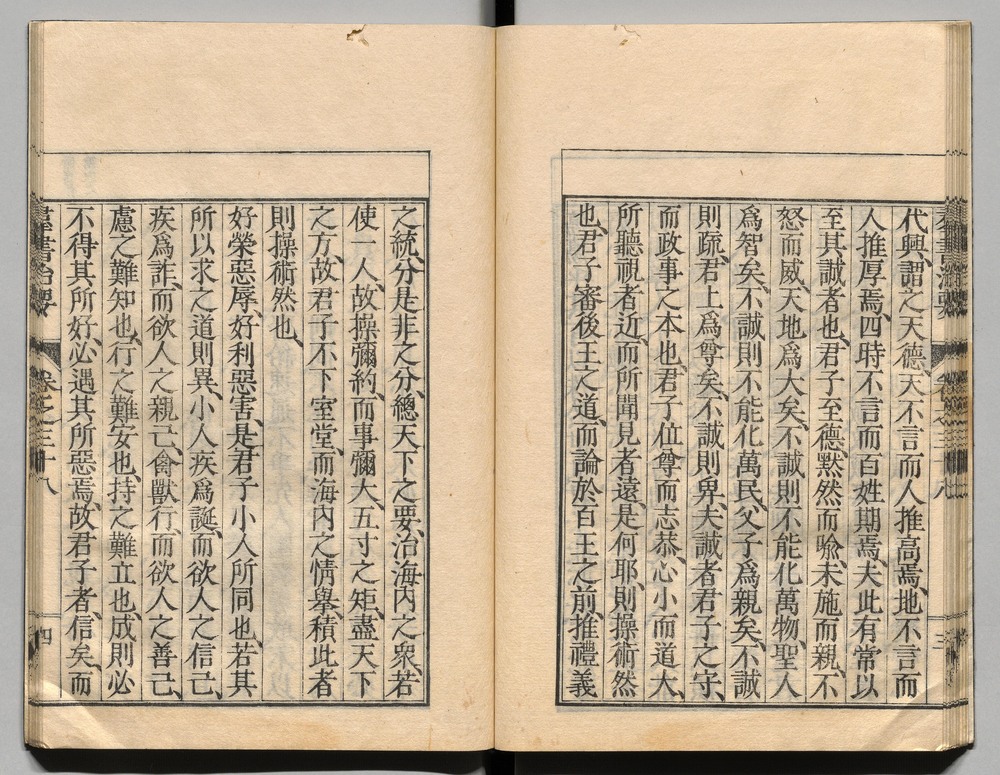 代興、謂之天德、天不言而人推高焉、地不言而
人推厚焉、四時不言而百姓期焉、夫此有常以
至其誠者也、君子至德、默然而喩、未施而親、不
怒而威、天地爲大矣、不誠則不能化萬物、聖人
爲智矣、不誠則不能化萬民、父子爲親矣、不誠
則疏、君上爲尊矣、不誠則卑、夫誠者君子之守、
而政事之本也、君子位尊而志恭、心小而道大、
所聽視者近、而所聞見者遠、是何耶、則操術然
也、君子審後王之道、而論於百王之前、推禮義
三
之統、分是非之分、總天下之要、治海內之衆、若
使一人、故操彌約、而事彌大、五寸之矩、盡天下
之方、故君子不下室堂、而海內之情擧、積此者
則操術然也、
好榮惡辱、好利惡害、是君子小人所同也、若其
所以求之道則異、小人疾爲誕、而欲人之信己、
疾爲詐、而欲人之親己、禽獸行、而欲人之善己、
慮之難知也、行之難安也、持之難立也、成則必
不得其所好、必遇其所惡焉、故君子者、信矣、而
羣書治要 卷之三十八
四